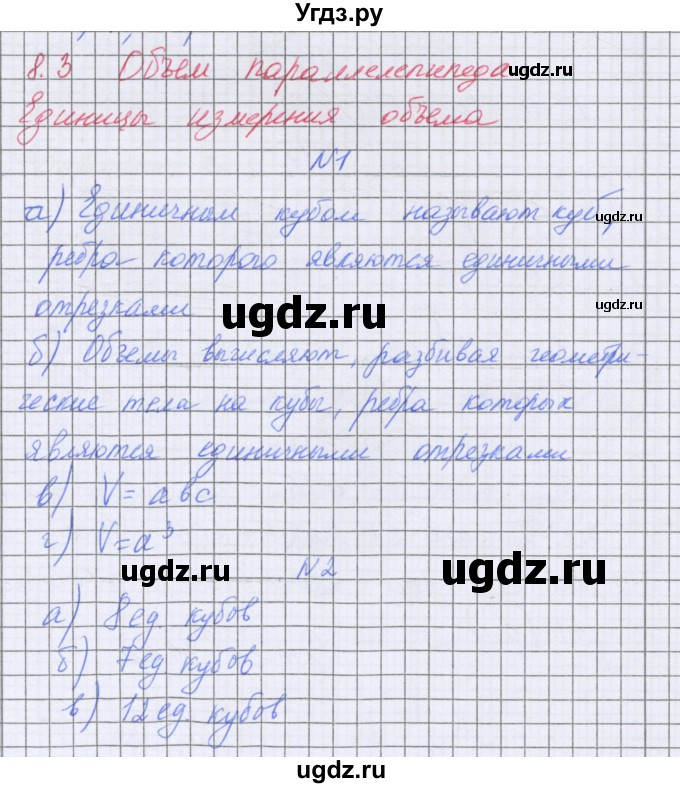 Угдз.ру
8.3 Объем параллелепипеда
ugdz.ru
Единицы измерения объема
N1
а) Единичным кубом называют куб,
ugdz.ru
ребра которого являются единичными
отрезками
ugdz.ru
ugdz.ru
б) Объемы вычисляют, разбивая геометри-
ческие тела на кубы, ребра которых
являются единичными отрезками
в) V = abc
г) V = a³
N2
ugdz.ru
ugdz.ru
а) 8 ед. кубов
б) 7 ед кубов
ugdz.ru
в) 12 ед. кубов
ugdz.ru